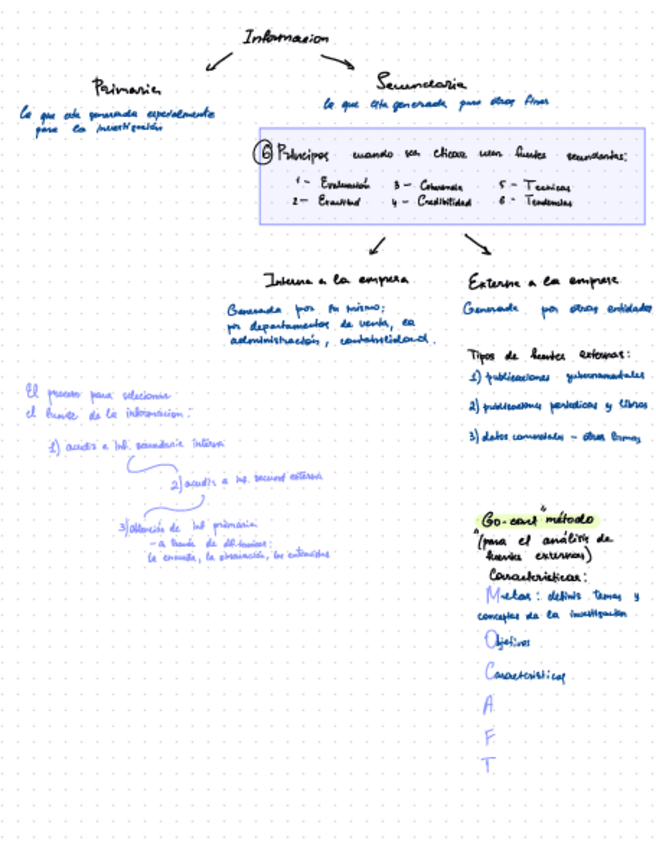 Informacion
Primaria
Secundaria
La que esta generada especialmente
para la investigación
la que esta generada para otros fines
6 Principos cuando sea eficaz usar fuentes secundarias:
1- Evaluación 3- Coherencia 5- Tecnicas
2- Exactitud 4- Credibilidad 6- Tendencias
Interna a la empresa
Generada por tu mismo:
por departamentos de venta, la
administración, contabilidad.
Externa a la empresa
Generada por otras entidades
Tipos de fuentes externas:
1) publicaciones gubernamentales
2) publicaciones periodicas y libros
3) datos comerciales - otras firmas
El proceso para selecionar
el fuente de la informacion:
1) acudir a inf. secundaria interna
2) acudir a inf. secund externa
3) obtención de inf primaria
- a través de dif. tecnicas:
la encuesta, la observación, las entrevistas
"Go-cart" método
(para el análisis de
fuentes externas)
Caracteristicas:
Metas: definir temas y
conceptos de la investigación
Objetivos
Caracteristicas
A
F
T